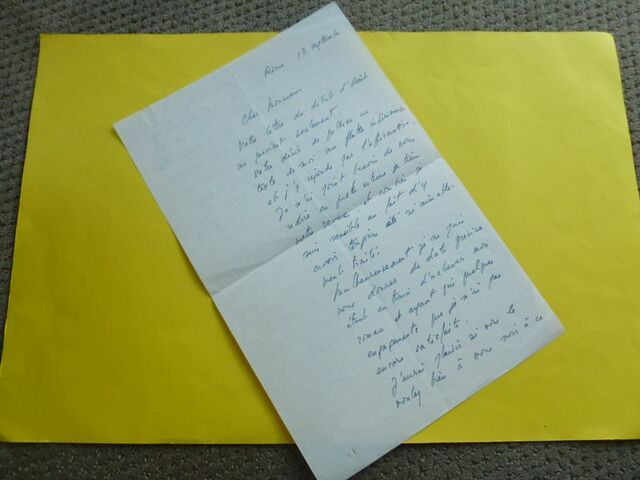 Rome 18 septembre
Cher Monsieur
Votre lettre du début d'Août
me parvient seulement
Votre désir de publier un
texte de moi me flatte infiniment
et j'y réponds par l'affirmative.
Je n'ai point besoin de vous
redire en quelle estime je tiens
votre revue et combien je
suis sensible au fait d'y
avoir toujours été si aimable-
ment traité.
Malheureusement je ne puis
vous donner de date précise
étant en train d'achever mon
roman et ayant pris quelques
engagements que je n'ai pas
encore satisfaits.
J'aurai plaisir si vous le
voulez bien à vous voir à ce